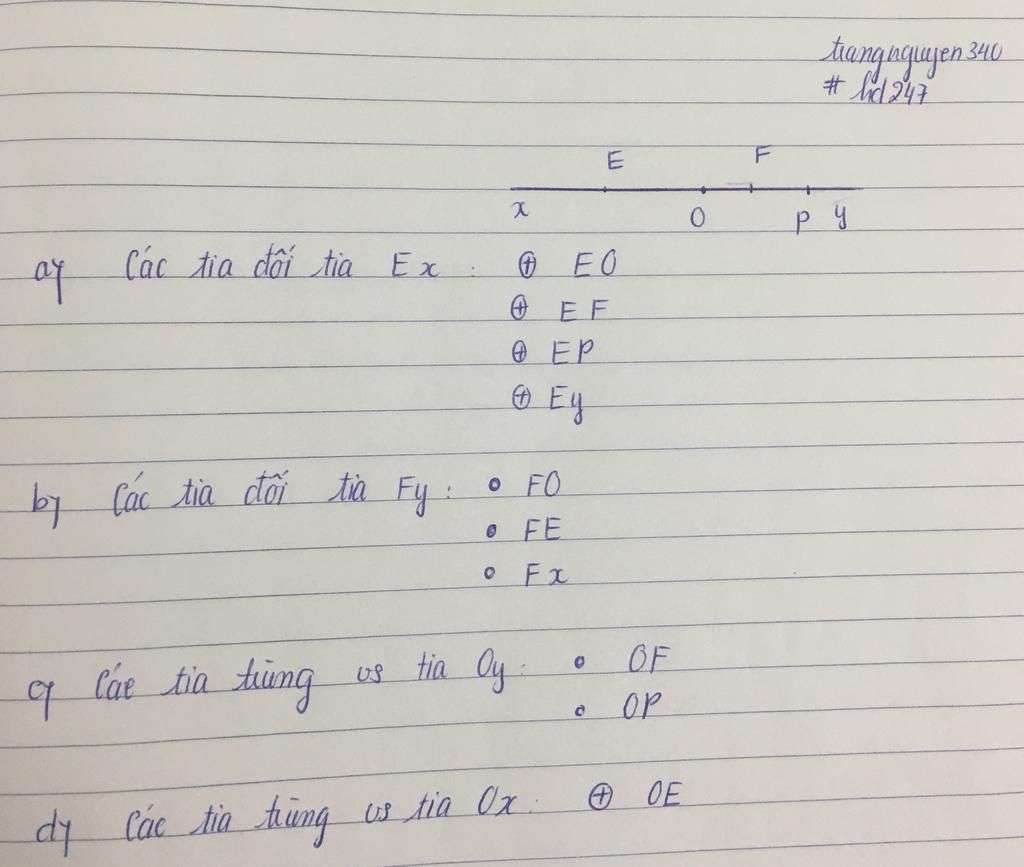 trangnguyen340
# hd247
E F
x O P y
a) Các tia đối tia Ex : ⊕ EO
⊕ EF
⊕ EP
⊕ Ey
b) Các tia đối tia Fy : • FO
• FE
• Fx
c) Các tia trùng vs tia Oy : • OF
• OP
d) Các tia trùng vs tia Ox : ⊕ OE